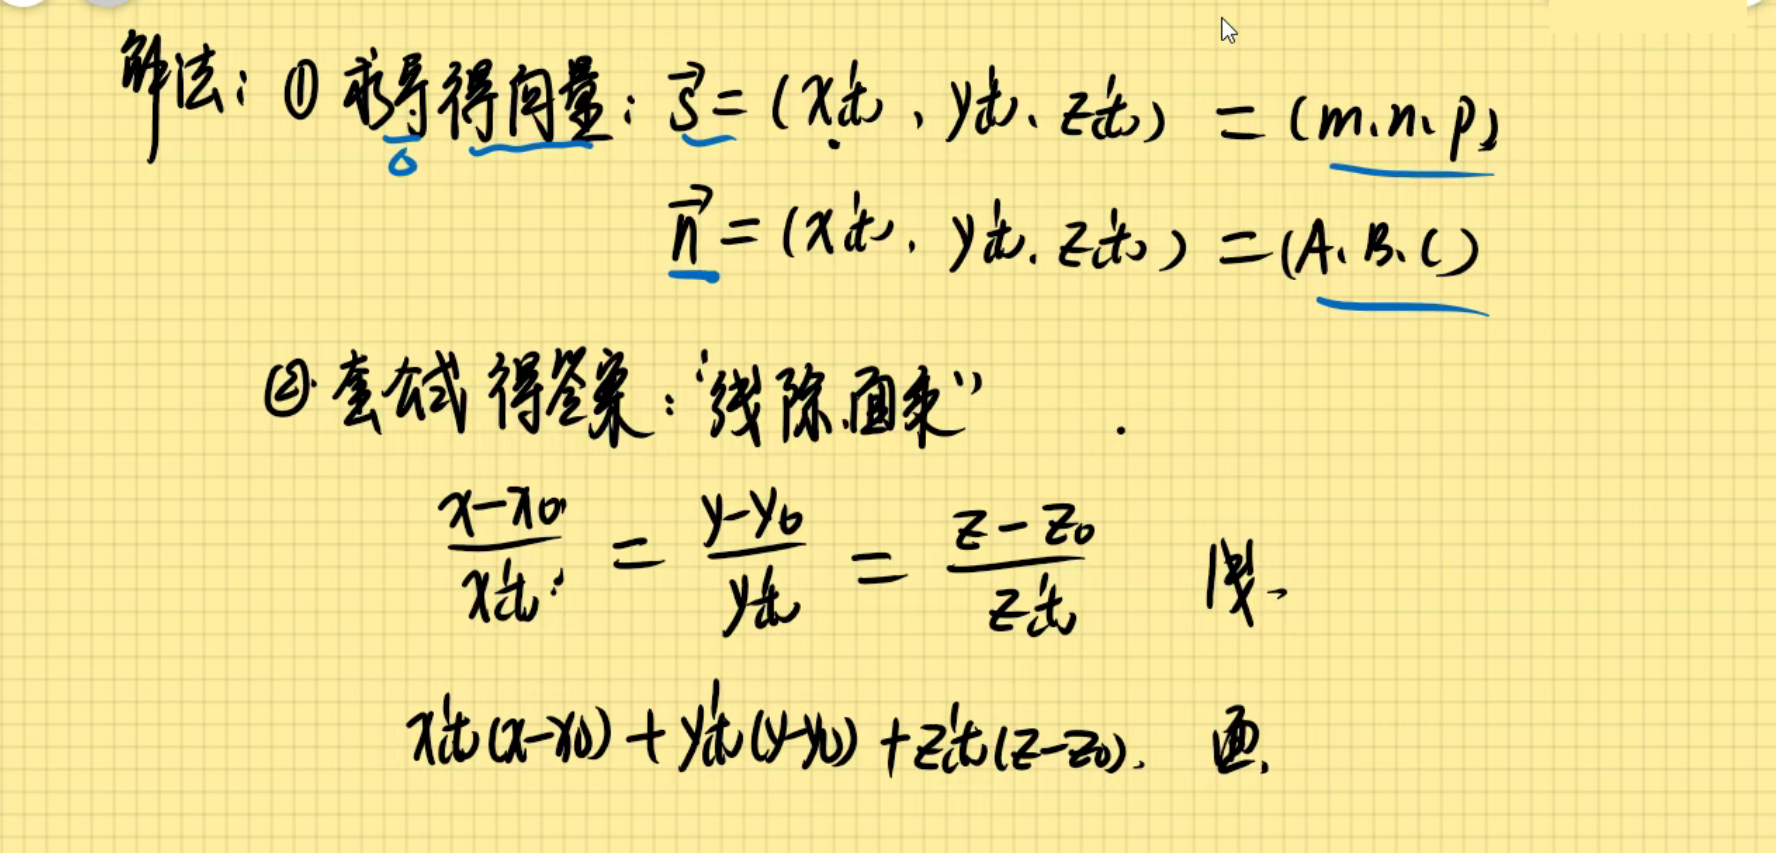 解法：① 求导得向量：s⃗ = (x't0、y't0、z't0) = (m、n、p)
n⃗ = (x't0、y't0、z't0) = (A、B、C)
②套公式得答案：“线除、面乘”
(x-x0)/x't0 = (y-y0)/y't0 = (z-z0)/z't0 线
x't0(x-x0) + y't0(y-y0) + z't0(z-z0). 面.